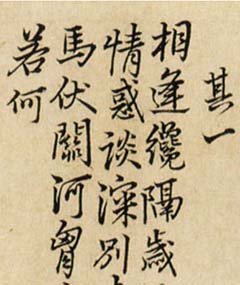 其一
相逢纔隔歲
情惑談深別
馬伏關河胷
若何